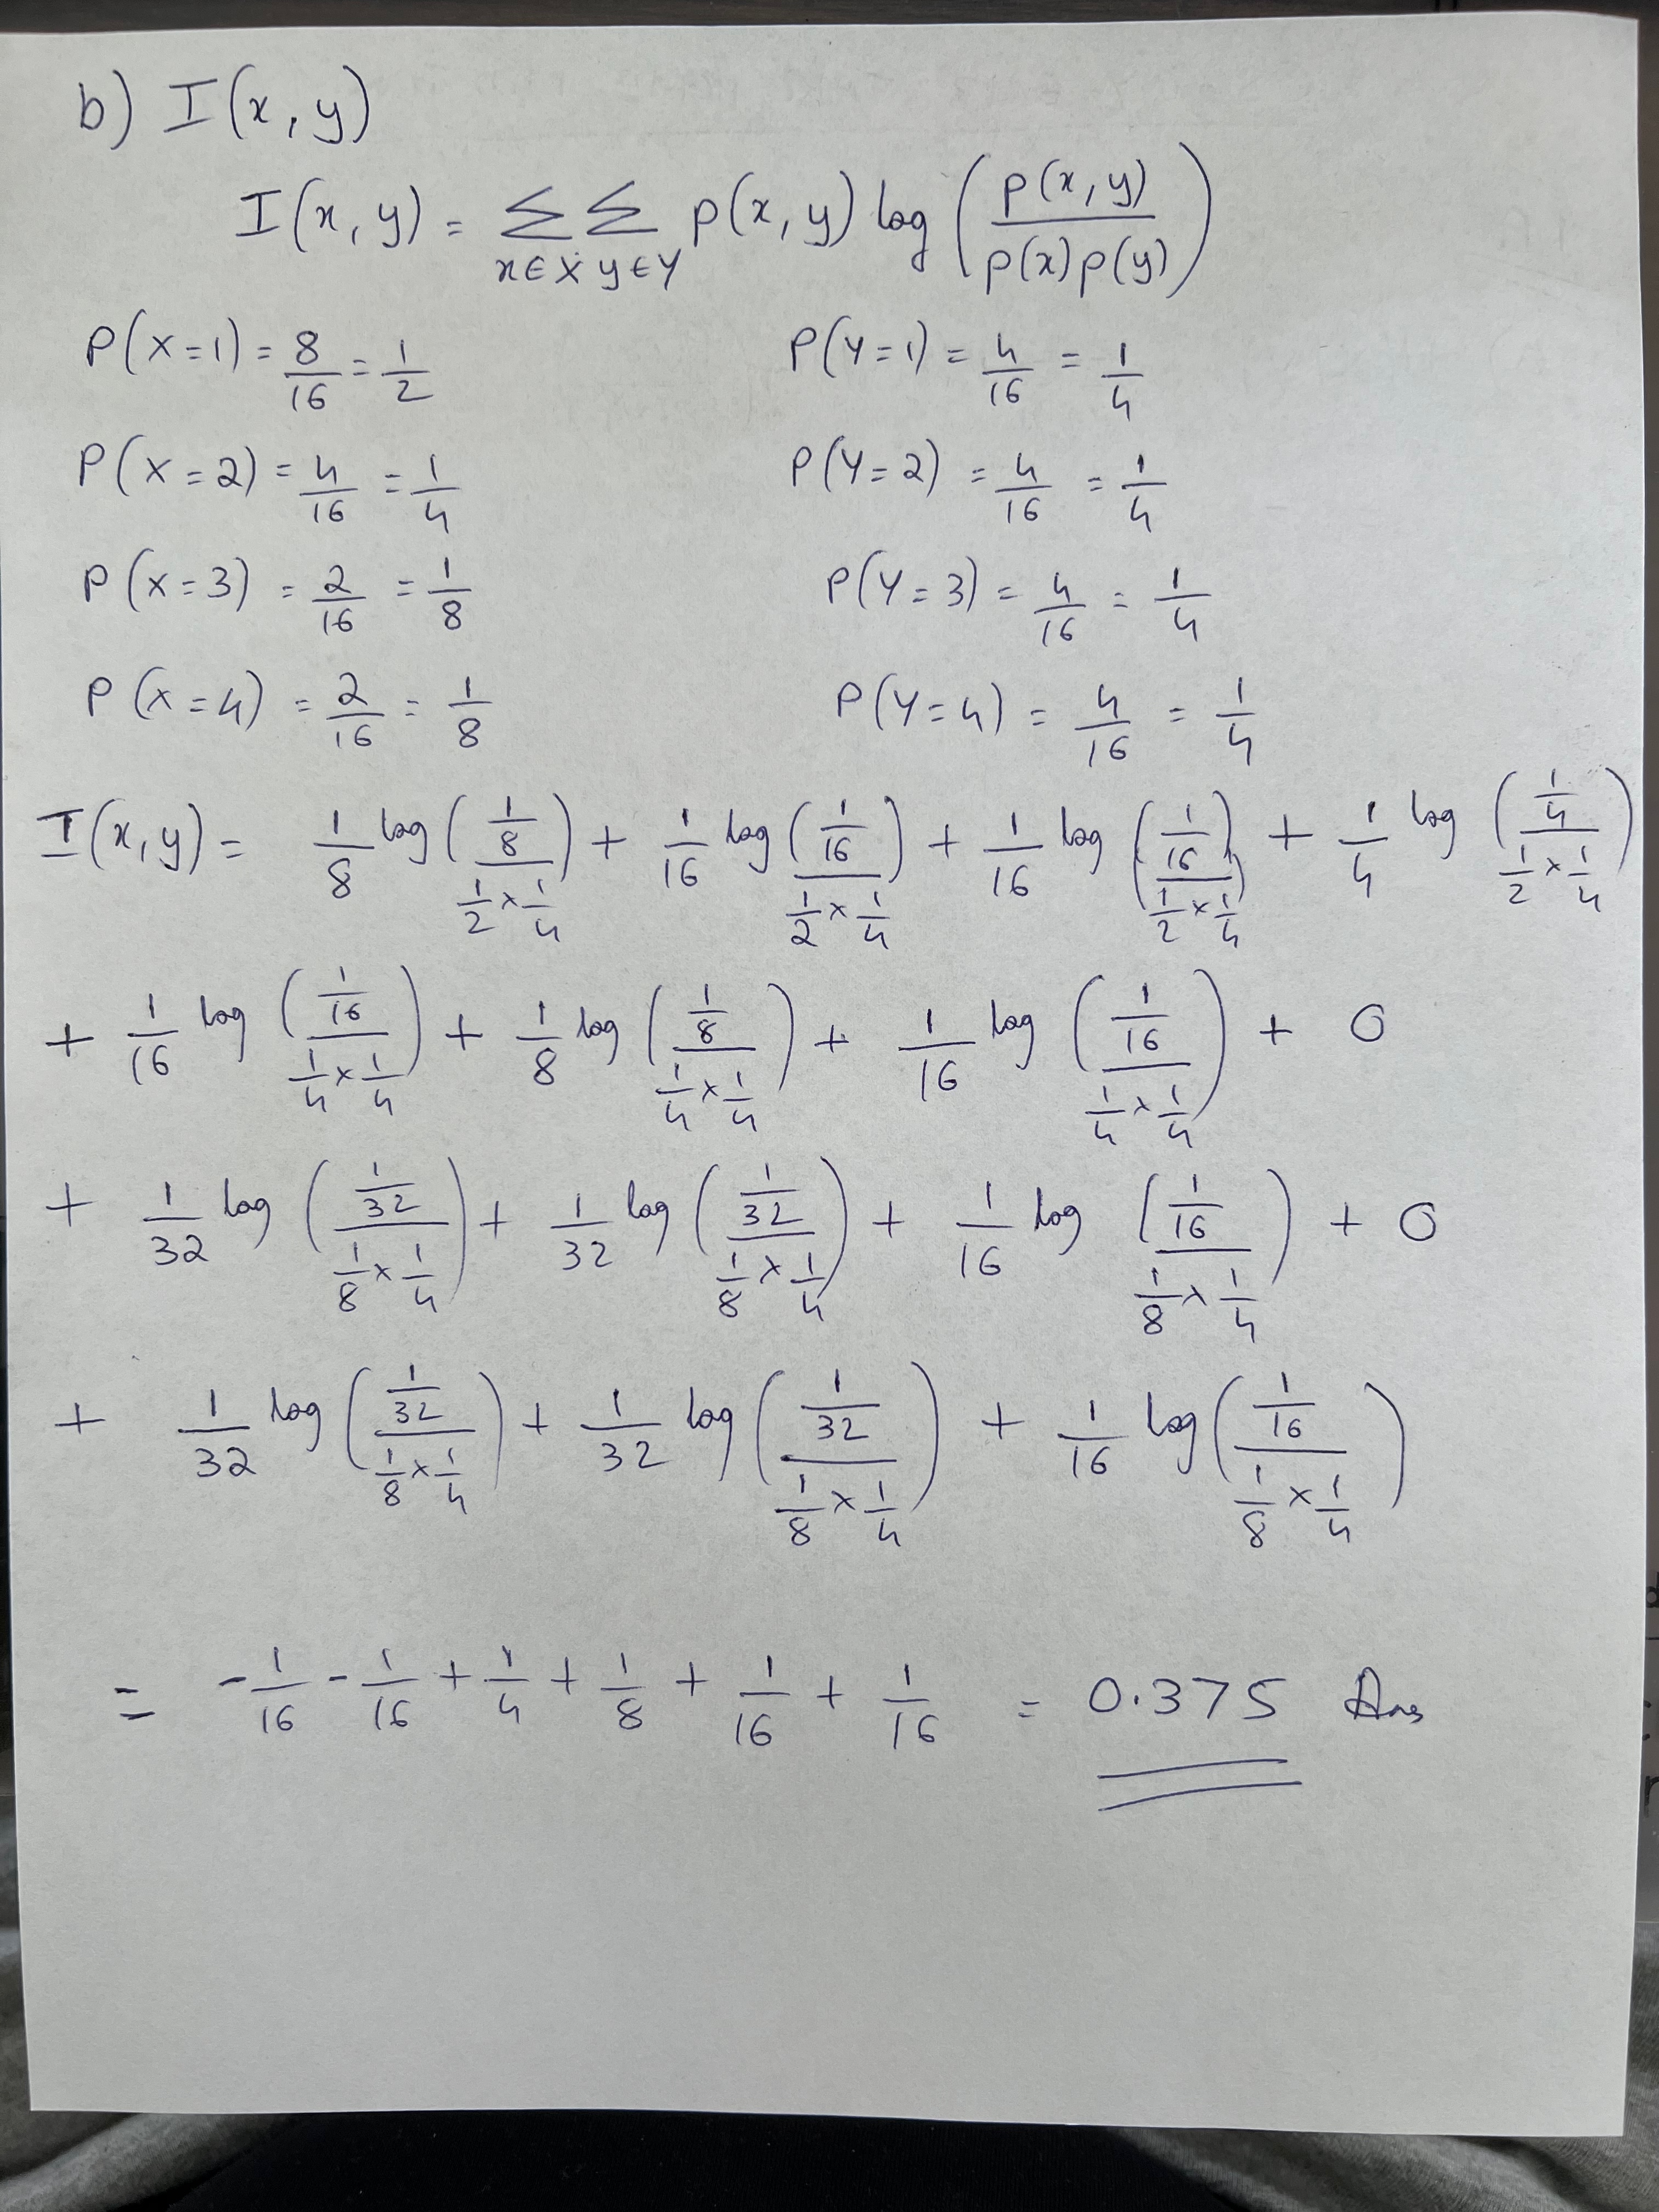 b) I(x, y)
I(x, y) = Σ Σ p(x, y) log ( p(x, y) / p(x) p(y) )
x∈X y∈Y
P(X=1) = 8/16 = 1/2 P(Y=1) = 4/16 = 1/4
P(X=2) = 4/16 = 1/4 P(Y=2) = 4/16 = 1/4
P(X=3) = 2/16 = 1/8 P(Y=3) = 4/16 = 1/4
P(X=4) = 2/16 = 1/8 P(Y=4) = 4/16 = 1/4
I(x, y) = 1/8 log ( 1/8 / 1/2 × 1/4 ) + 1/16 log ( 1/16 / 1/2 × 1/4 ) + 1/16 log ( 1/16 / 1/2 × 1/4 ) + 1/4 log ( 1/4 / 1/2 × 1/4 )
+ 1/16 log ( 1/16 / 1/4 × 1/4 ) + 1/8 log ( 1/8 / 1/4 × 1/4 ) + 1/16 log ( 1/16 / 1/4 × 1/4 ) + 0
+ 1/32 log ( 1/32 / 1/8 × 1/4 ) + 1/32 log ( 1/32 / 1/8 × 1/4 ) + 1/16 log ( 1/16 / 1/8 × 1/4 ) + 0
+ 1/32 log ( 1/32 / 1/8 × 1/4 ) + 1/32 log ( 1/32 / 1/8 × 1/4 ) + 1/16 log ( 1/16 / 1/8 × 1/4 )
= -1/16 - 1/16 + 1/4 + 1/8 + 1/16 + 1/16 = 0.375 Ans